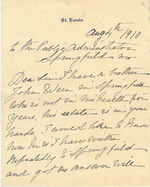 St. Louis
Aug 4th 1910
To the Public Administrator
Springfield Mo
Dear Sir I have a brother
John in Springfield
who is not in his health for
years, his estate is in your
hands. I would like to know
how he is I have written
repeatedly to Springfield
and got no answer will